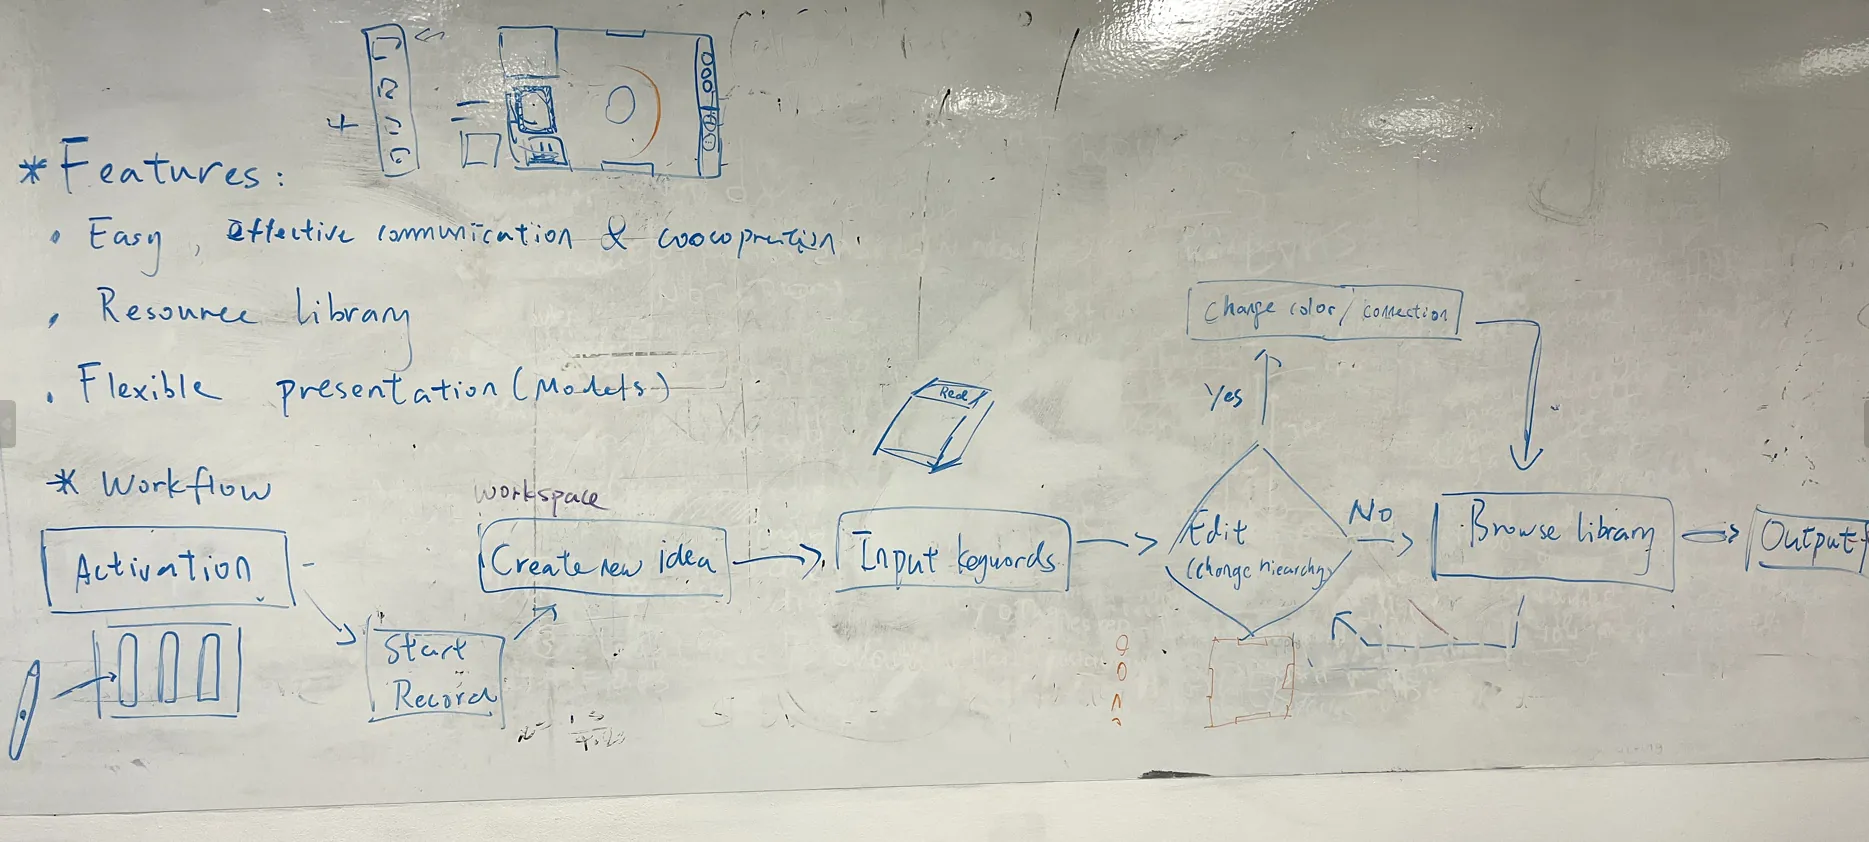 * Features:
· Easy, effective communication & coocopration.
· Resource library
· Flexible presentation (Models)
Real
* Workflow
Activation
Start
Record
workspace
Create new idea
Input keywords
Edit
(change hierarchy)
Yes
Change color / connection
No
Browse library
Output